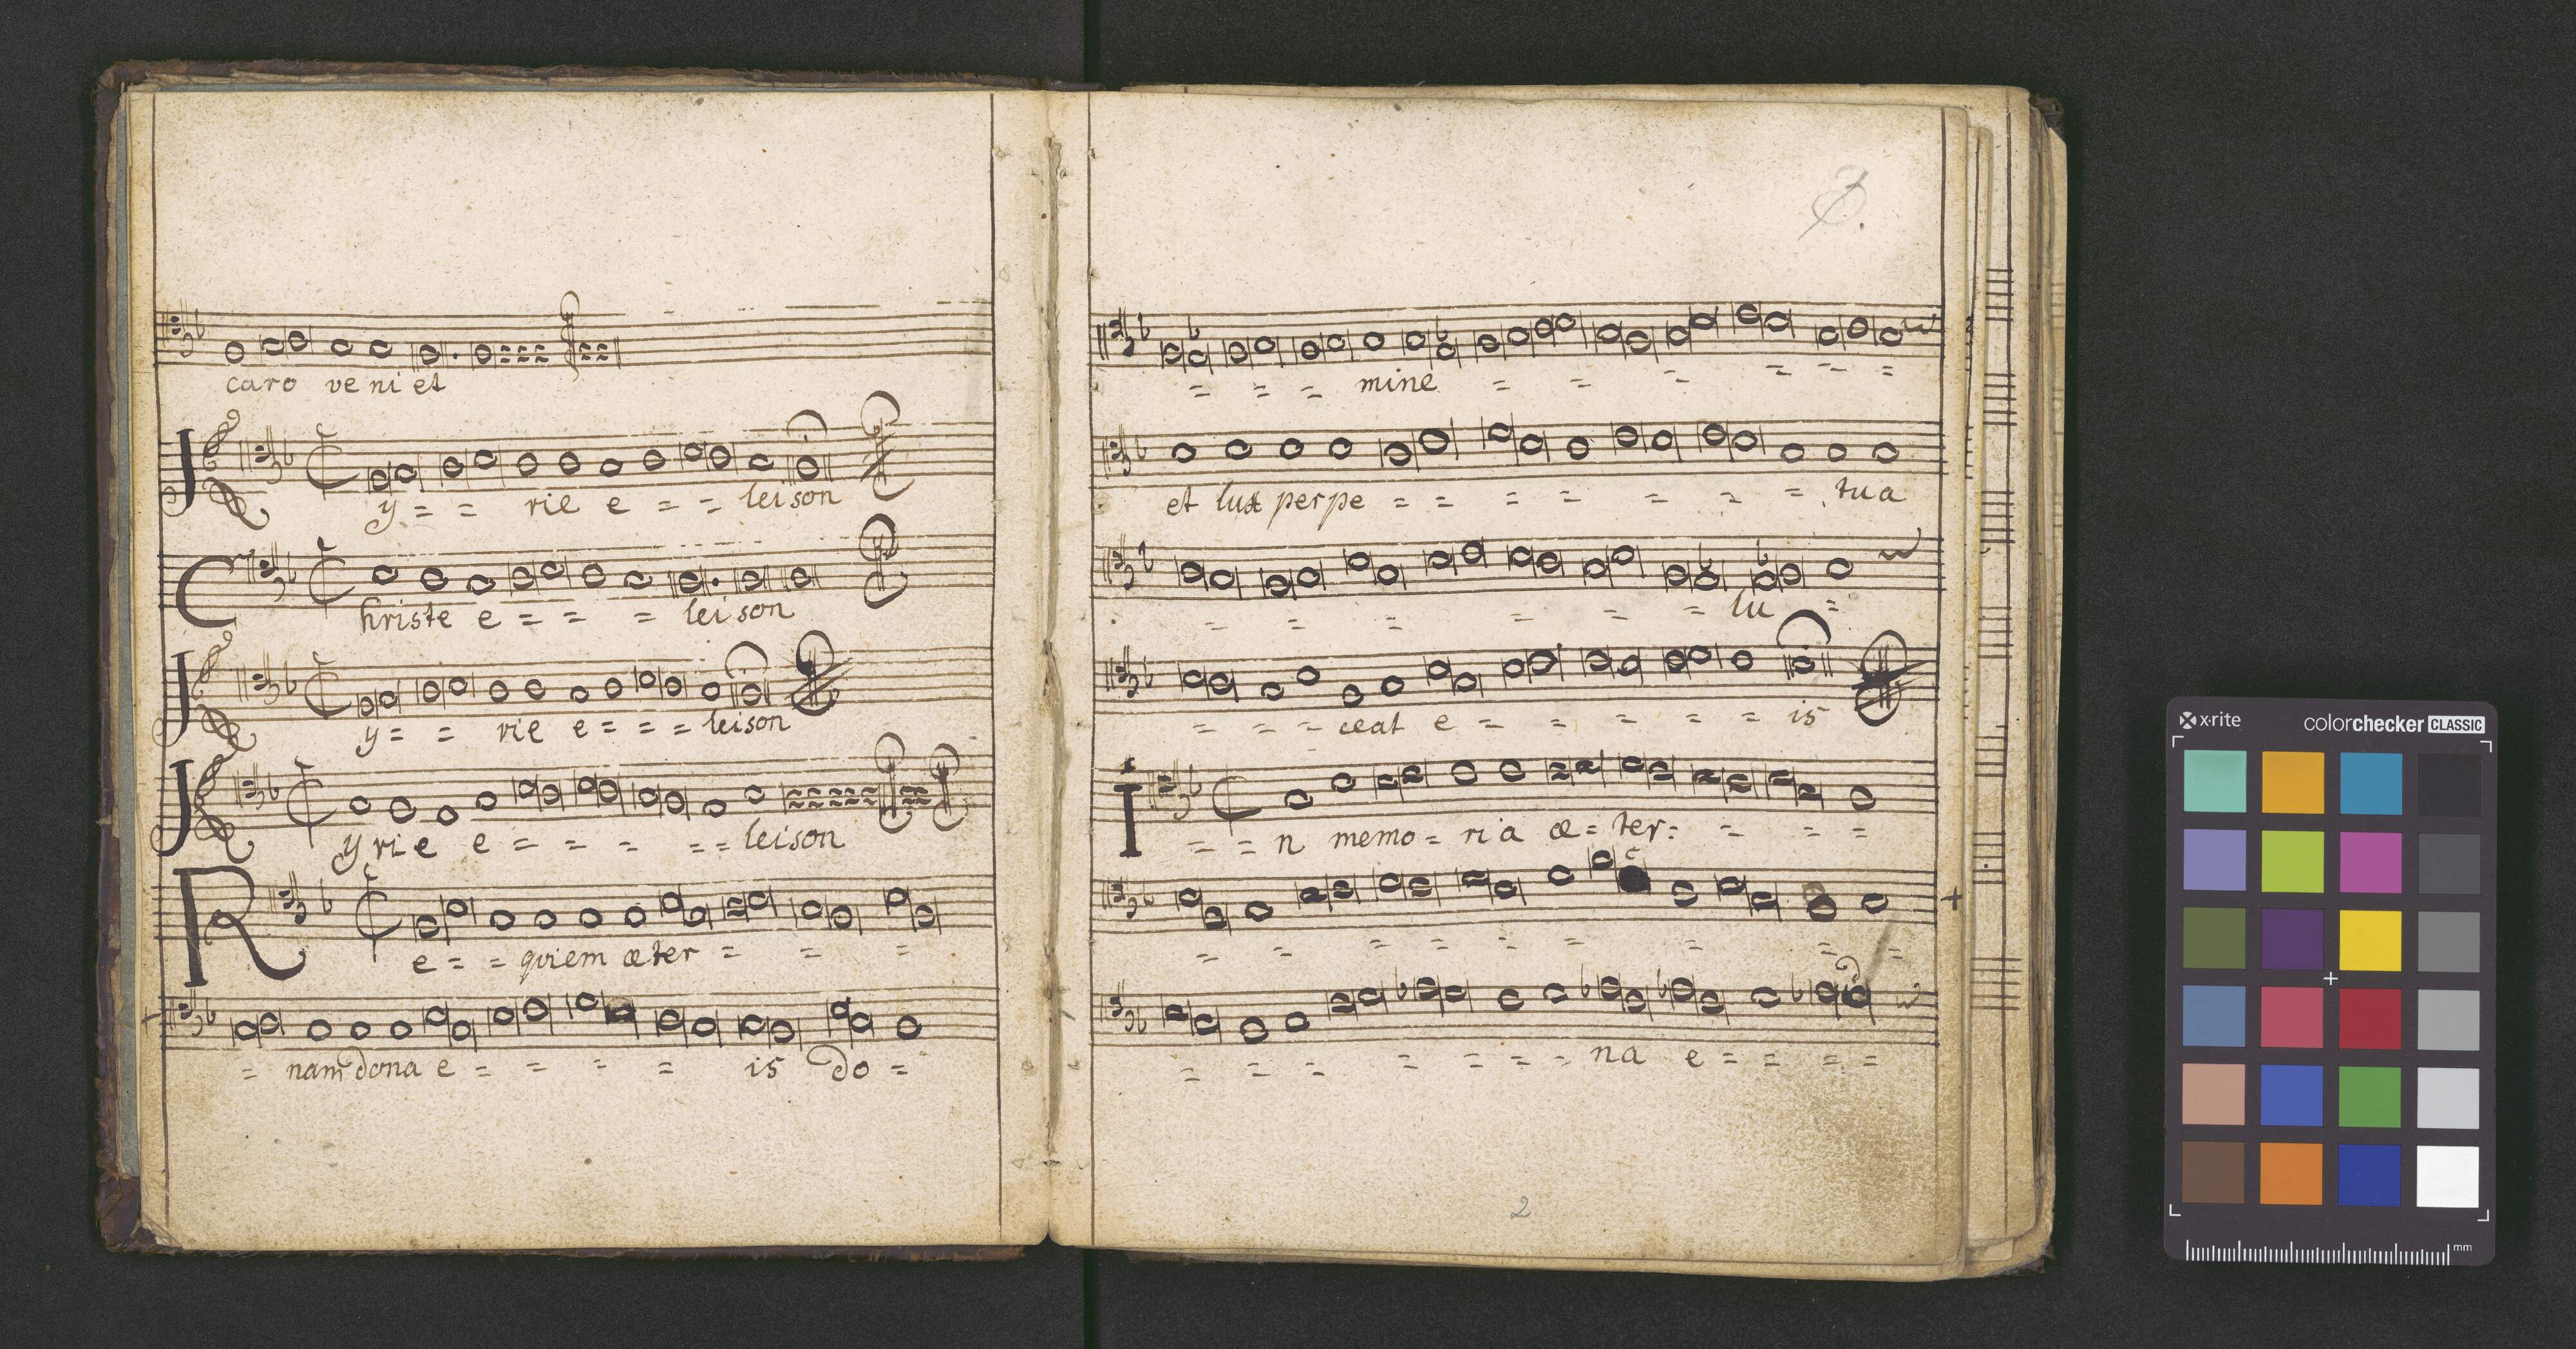 caro ve ni et
Ky = = rie e = = = lei son
Christe e = = = lei son
Ky = = rie e = = = leison
Ky ri e e = = = = = leison
Re = = qviem æter = = =
= nam dona e = = = = is do =
3.
= = = mine = = = = = =
et lux perpe = = = = = = = tua
= = = = = = lu =
= = = ceat e = = = = = is
In memo = ri a æ = ter = = = =
= = = = = = = = =
= = = = = = = na e = = = =
2
x·rite colorchecker CLASSIC
mm